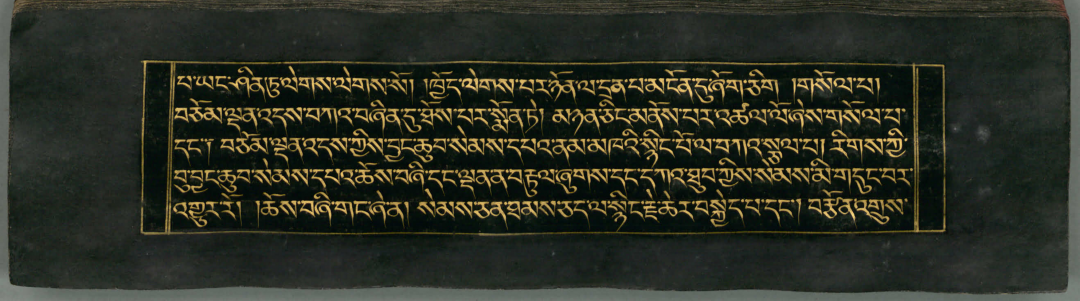 པ་ཡང་ཤིན་ཏུ་ལེགས་ལེགས་སོ། །ཁྱོད་ལེགས་པར་ཉོན་ལ་དྲན་པ་མངོན་དུ་ཞོག་ཅིག །གསོལ་པ།
བཅོམ་ལྡན་འདས་བཀའ་བཞིན་དུ་ཐོས་པར་སྨོན་ཏེ། མཉན་ཅིང་མནོས་པར་འཚལ་ལོ་ཞེས་གསོལ་པ་
དང༌། བཅོམ་ལྡན་འདས་ཀྱིས་བྱང་ཆུབ་སེམས་དཔའ་ནམ་མཁའི་སྙིང་པོ་ལ་བཀའ་སྩལ་པ། རིགས་ཀྱི་
བུ་བྱང་ཆུབ་སེམས་དཔའ་ཆོས་བཞི་དང་ལྡན་ན་བརྟུལ་ཞུགས་དང་དཀའ་ཐུབ་ཀྱིས་སེམས་མི་གདུང་བར་
འགྱུར་རོ། །ཆོས་བཞི་གང་ཞེ་ན། སེམས་ཅན་ཐམས་ཅད་ལ་སྙིང་རྗེ་ཆེར་བསྐྱེད་པ་དང༌། བརྩོན་འགྲུས་